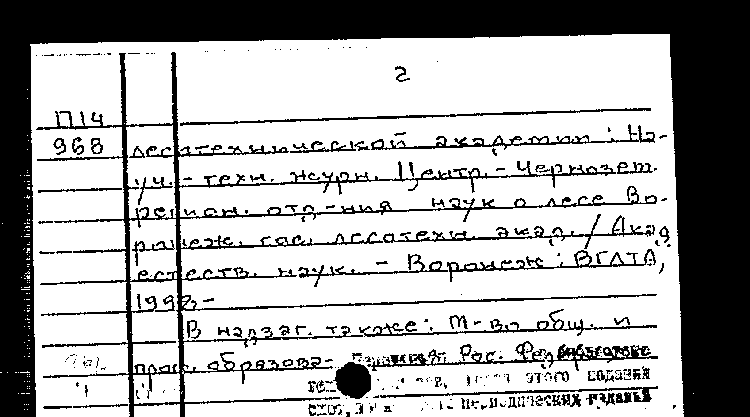 2
П14
968
лесотехнической академии : На-
уч.-техн. журн. Центр.-Чернозем.
регион. отд-ния наук о лесе Во-
ронеж. гос. лесотехн. акад. / Акад
естеств. наук. - Воронеж : ВГЛТА,
1998-
В надзаг. также: М-во общ. и
проф. образова- Рос. Фе
этого издания
периодических изданий